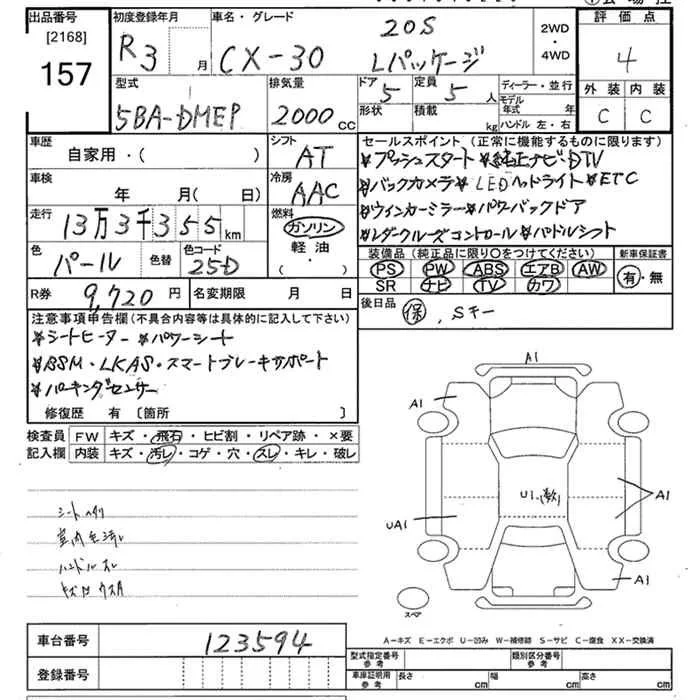 出品番号
[2168]
157
初度登録年月
R3
月
車名・グレード
CX-30
20S
Lパッケージ
2WD
・
4WD
評価点
4
外装
内装
C
C
型式
5BA-DMEP
排気量
2000 CC
ドア
5
形状
定員
5 人
積載
kg
ディーラー・並行
モデル年式 年
ハンドル 左・右
車歴
自家用・( )
シフト
AT
車検
年 月( 日)
冷房
AAC
走行
13万3千355 km
燃料
ガソリン
軽油
・( )
色
パール
色替
色コード
25D
R券 9,720 円
名変期限 月 日
セールスポイント(正常に機能するものに限ります)
*プッシュスタート*純正ナビ・DTV
*バックカメラ*LEDヘッドライト*ETC
*ウィンカーミラー*パワーバックドア
*レダークルーズコントロール*パドルシフト
装備品(純正品に限り〇をつけてください)
新車保証書
PS PW ABS エアB AW
SR ナビ TV カワ
有・無
後日品
保、Sキー
注意事項申告欄(不具合内容等は具体的に記入して下さい)
*シートヒーター*パワーシート
*BSM・LKAS・スマートブレーキサポート
*パーキングセンサー
修復歴 有 〔箇所 〕
検査員
記入欄
FW キズ・飛石・ヒビ割・リペア跡・×要
内装 キズ・汚レ・コゲ・穴・スレ・キレ・破レ
シート
ハンドルスレ
A1
A1
UA1
U1
A1
A1
スペア
A-キズ E-エクボ U-凹み W-補修跡 S-サビ C-腐食 XX-交換済
車台番号
123594
登録番号
型式指定番号
参考
類別区分番号
参考
車庫証明用
参考
長さ cm
幅 cm
高さ cm